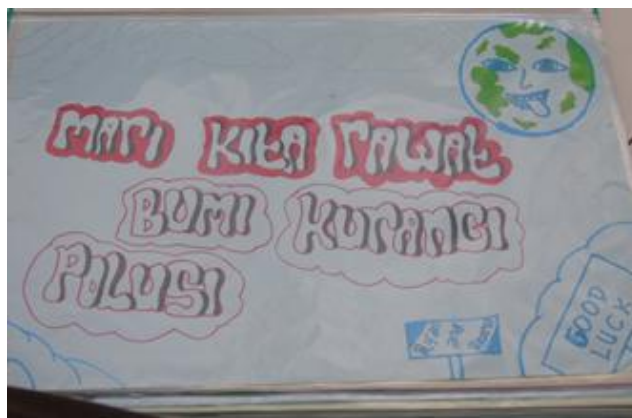 MARI KITA RAWAT
BUMI KURANGI
POLUSI
GOOD
LUCK